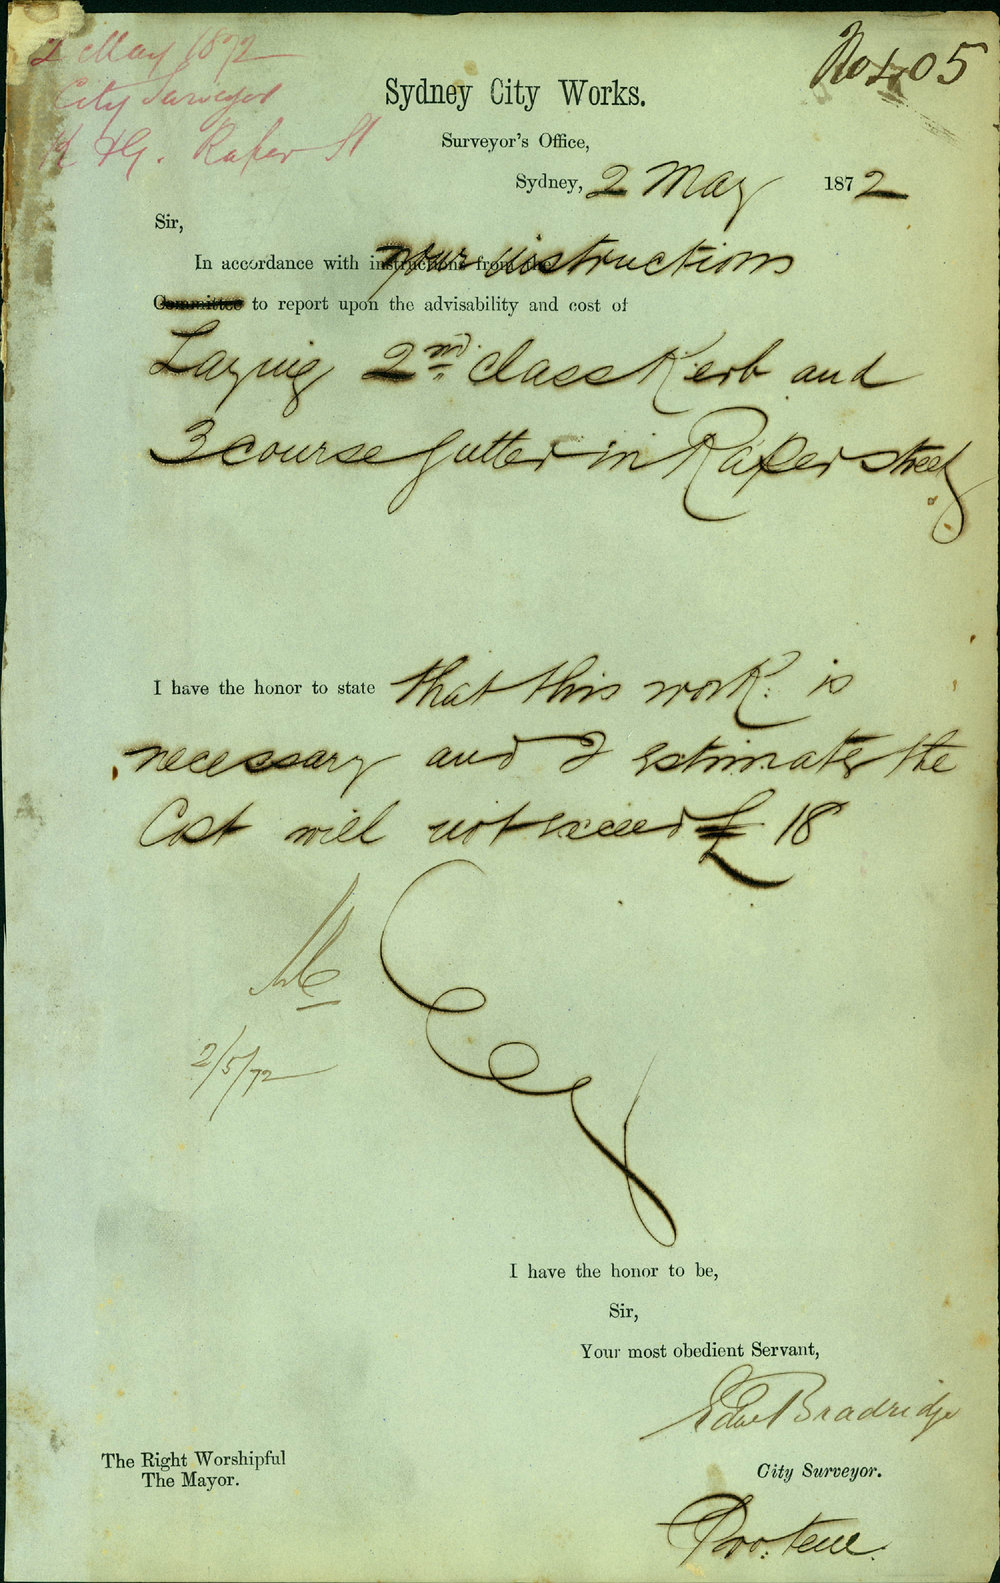 2 May 1872
City Surveyor
K & G. Raper St
No 405
Sydney City Works.
Surveyor's Office,
Sydney, 2 May 1872
Sir,
In accordance with instructions from the your instructions
Committee to report upon the advisability and cost of
Laying 2nd. class Kerb and
3 course gutter in Raper street
I have the honor to state that this work is
necessary and I estimate the
Cost will not exceed £ 18
2/5/72
I have the honor to be,
Sir,
Your most obedient Servant,
Edw Bradridge
City Surveyor.
The Right Worshipful
The Mayor.
Pro: tem.